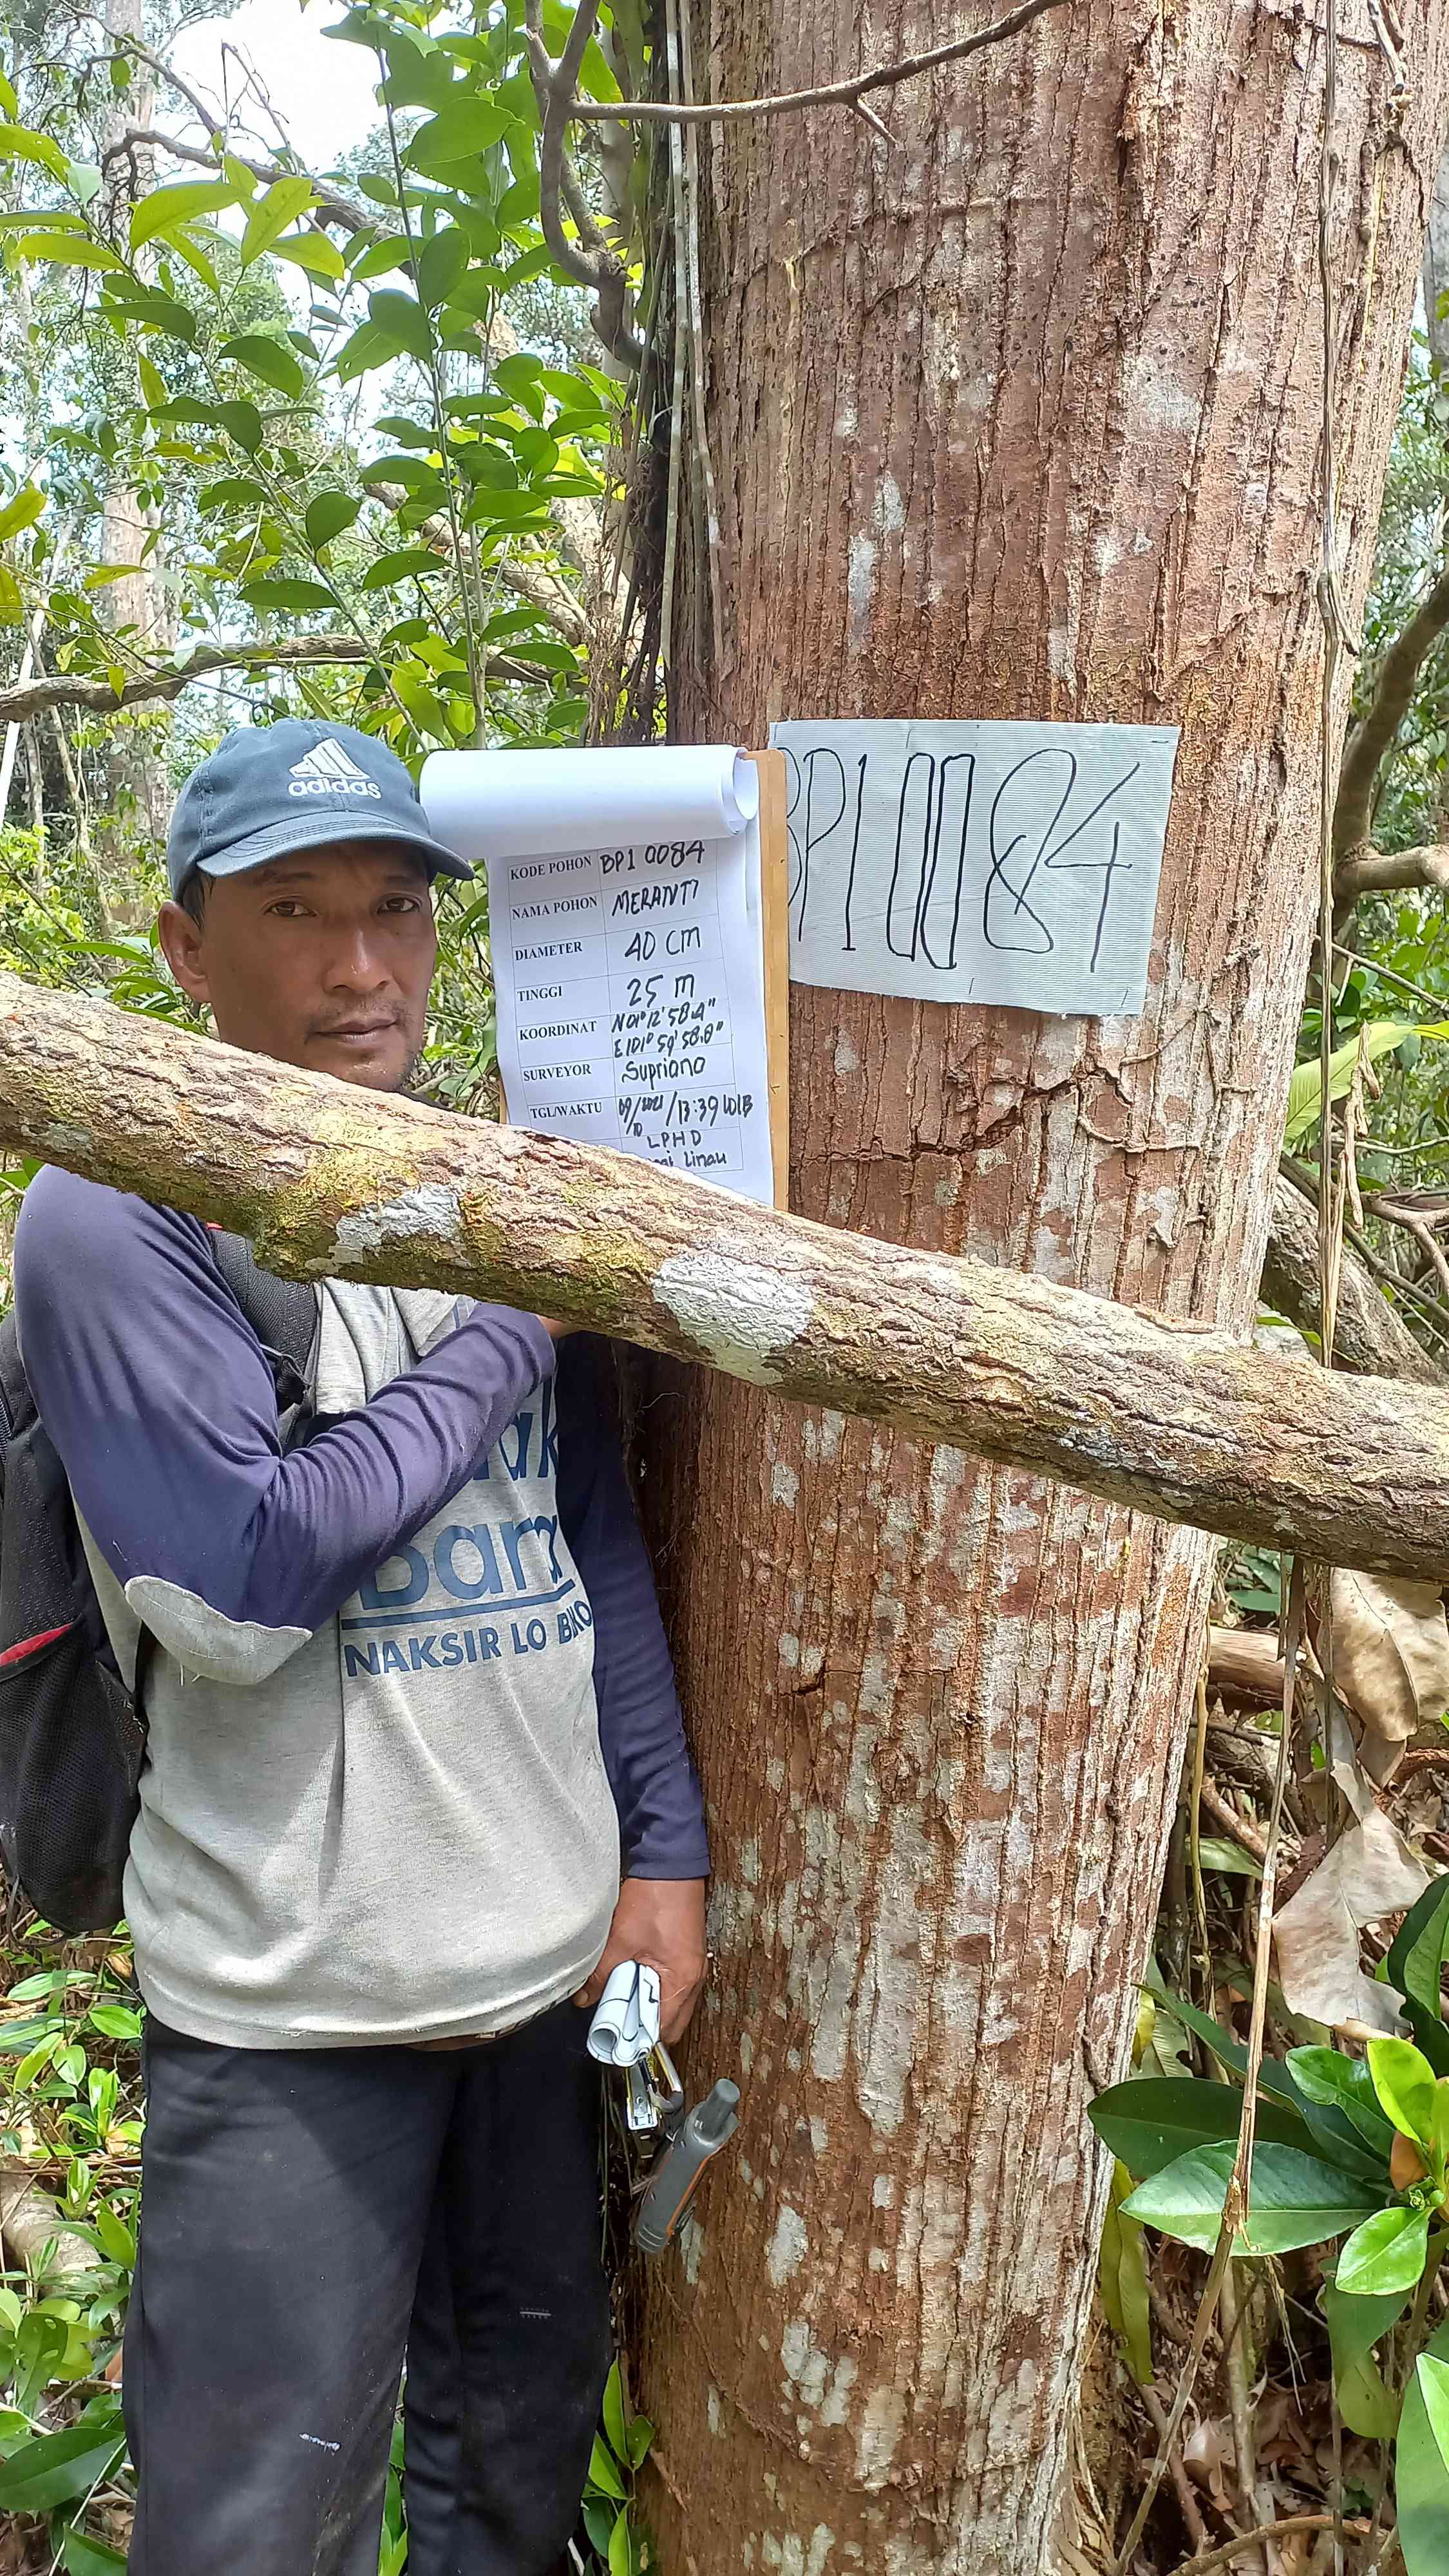 adidas
KODE POHON BP1 0084
NAMA POHON MERANTI
DIAMETER 40 CM
TINGGI 25 M
KOORDINAT N 01° 12' 58.4"
E 101° 59' 58.8"
SURVEYOR Supriano
TGL/WAKTU 09/10/2021/13:39 WIB
LPHD
Linau
BP1 0084
Bara
NAKSIR LO BRO